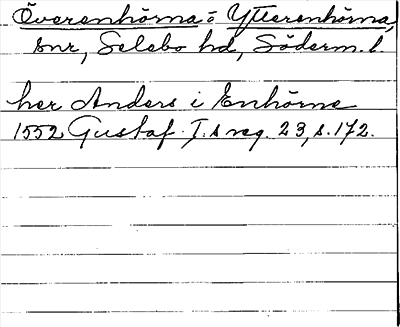 Överenhörna = Ytterenhörna,
snr, Selebo hd, Söderm. l.
her Anders i Enhörne
1552 Gustaf I.s reg. 23, s. 172.